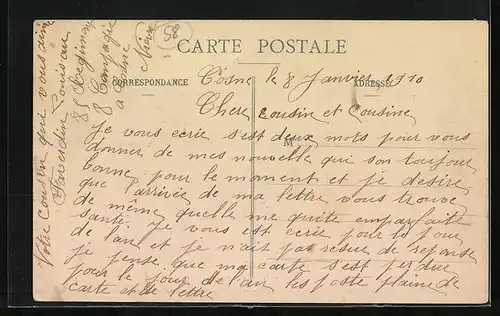 58
CARTE POSTALE
CORRESPONDANCE
ADRESSE
M
Cosne le 8 Janvier 1910
Chere cousin et Cousine
Je vous ecrie s'est deux mots pour vous
donner de mes nouvelle qui son toujour
bonne pour le moment et je desire
que l'arrivée de ma lettre vous trouve
de même quelle me quite emparfaite
santé. Je vous est ecrie pour le jour
de l'an et je n'ait pas resue de reponse
je pense que ma carte s'est perdue
pour le jour de l'an les poste plaine de
carte et de lettre
Votre cousin qui vous dime
Louis au
85 Regiment
8 Compagie
a Cosne
Nievre